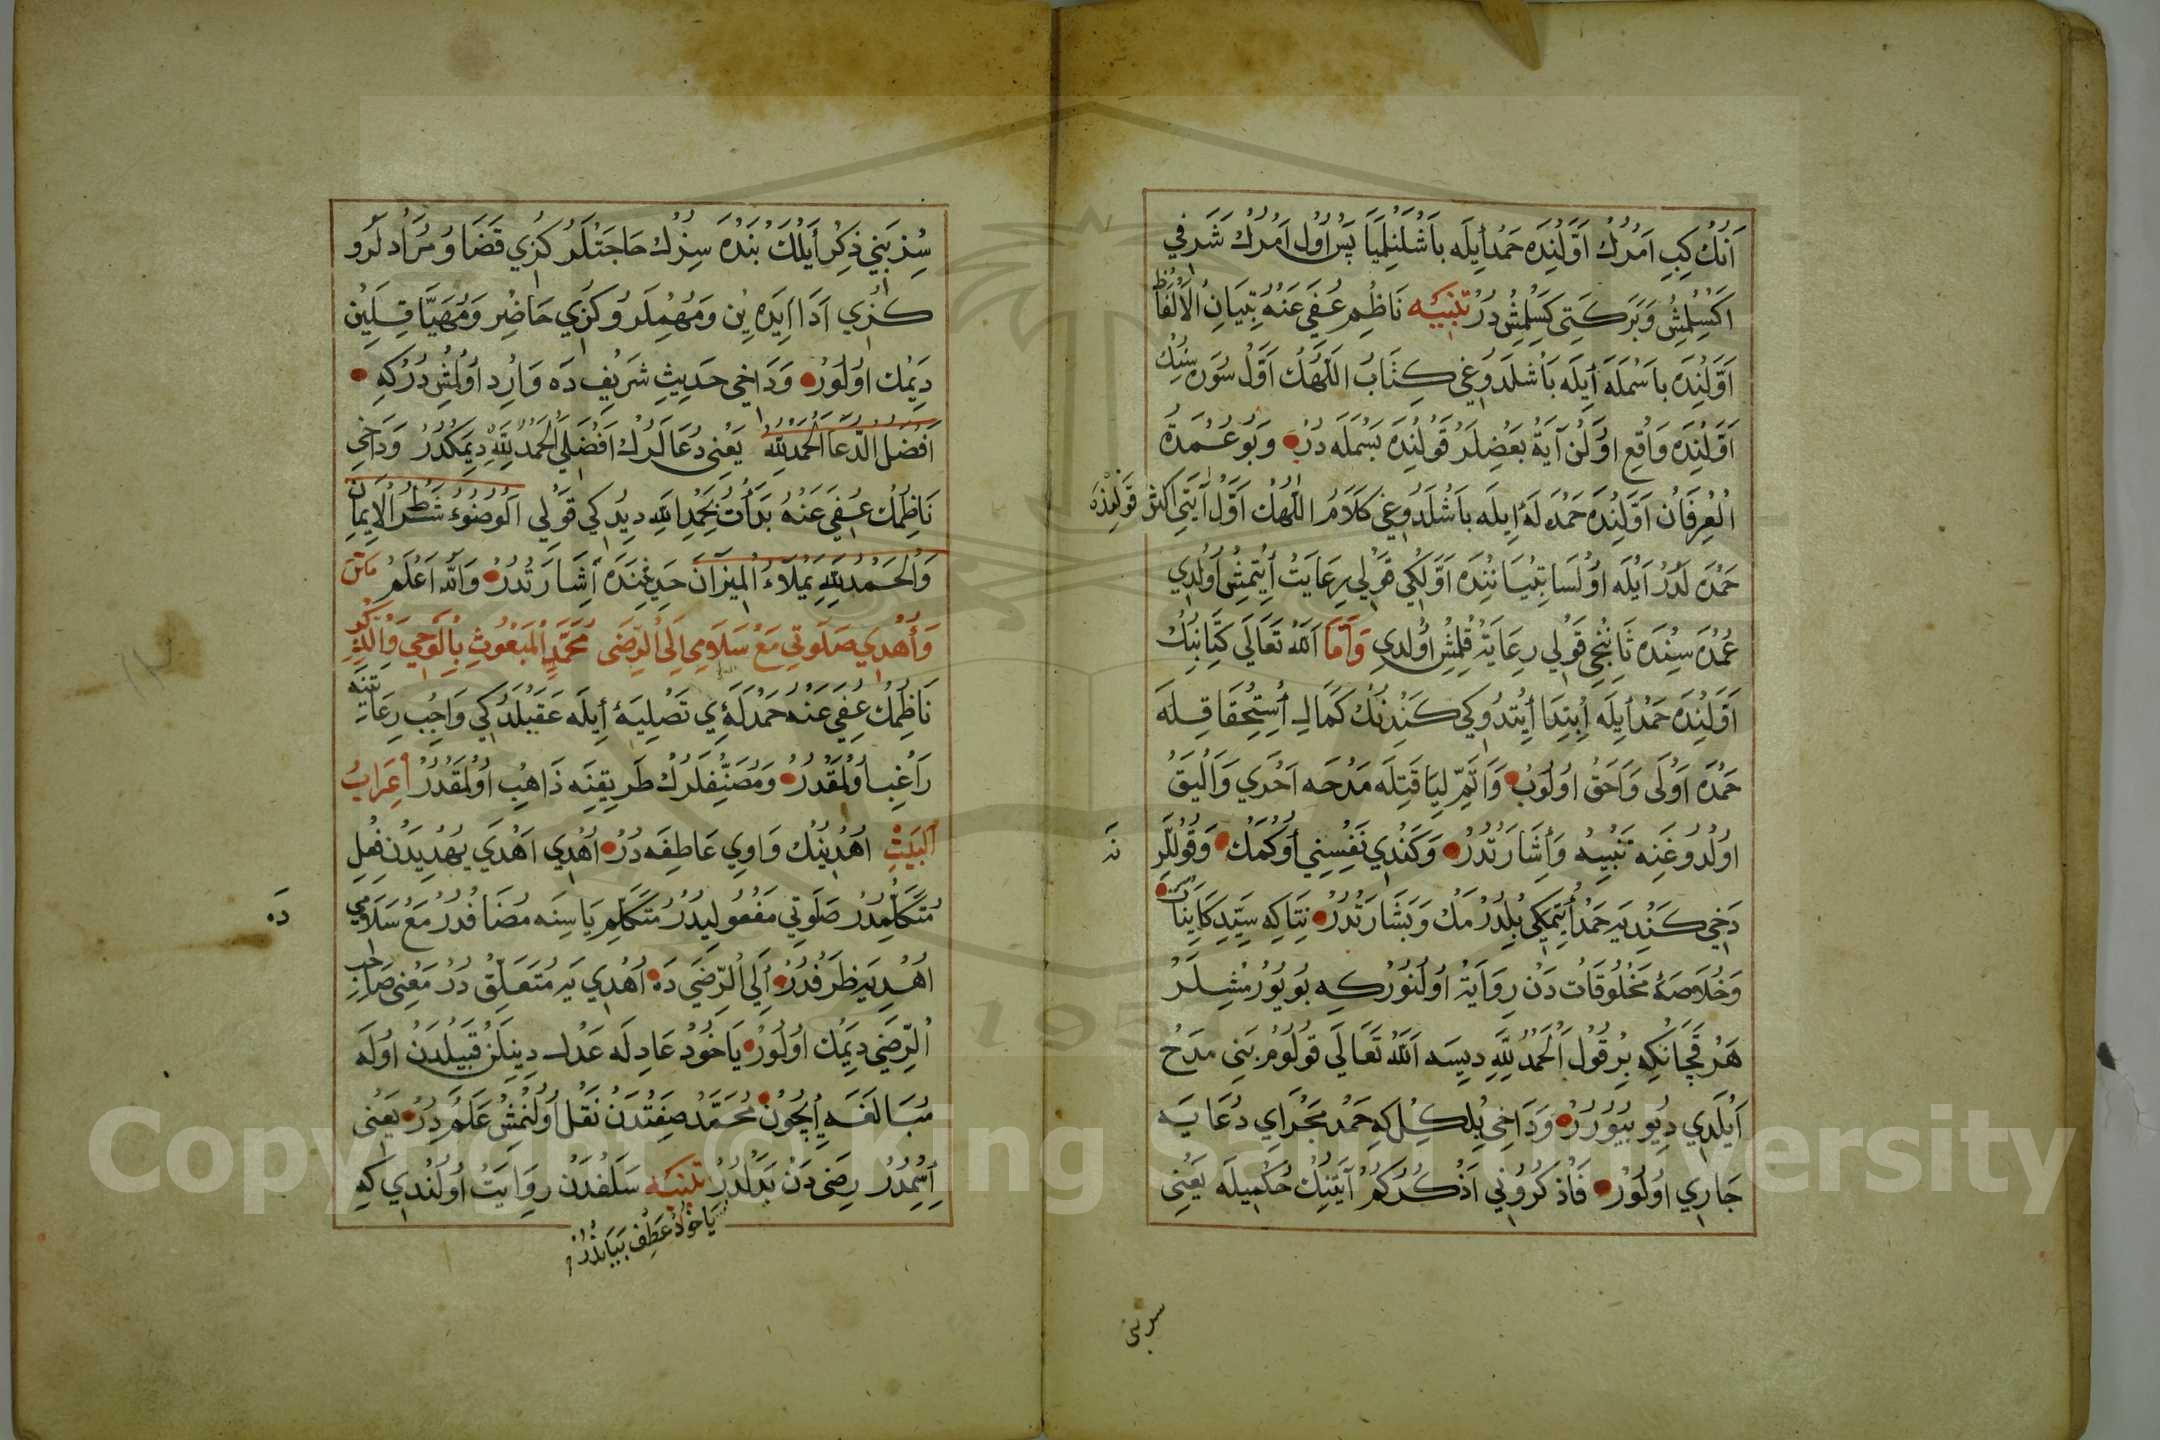 اَنُكْ كِبِ اَمْرُكْ اَوَّلِنْدَه حَمْد اِيلَه بَاشْلَنِلْمَيَا پَسْ اُول اَمْرُكْ شَرَفِي
اَكْسِلْمِشْ وَبَرَكَتِى كَسِلْمِشْ دُرْ تَنْبِيَه نَاظِمِ عُفِيَ عَنْهُ تِبْيَانِ الْاَلْفَاظ
اَوَّلِنْدَه بَاسْمَلَه اَيلَه بَاشْلَدُوغِى كِتَابُ اللّٰهُكْ اَوَّلْ سُورَه سِنُكْ
اَوَّلِنْدَه وَاقِع اُولَنْ آيَةْ بَعْضِلَرْ قَوْلِنْدَه بَسْمَلَه دُرْ وَبُو عُمْدَةُ
الْعِرْفَانْ اَوَّلِنْدَه حَمْدَلَه اِيلَه بَاشْلَدُوغِى كَلَامُ اللّٰهُكْ اَوَّلْ آيَتِى اَكْثَر قَوْلِنْدَه
حَمْدَه لَدُرْ اَيْلَه اُولْسَا تِبْيَانِنْدَه اَوَّلْكِى قَوْلِى رِعَايَتْ اِيتْمِشْ اُولْدِي
عُمْدَه سِنْدَه ثَانِنْجِى قَوْلِي رِعَايَةْ قِلْمِشْ اُولْدِي وَاَمَّا اَللّٰهُ تَعَالَي كِتَابِنُكْ
اَوَّلِنْدَه حَمْد اِيلَه اِبْتِدَا اِيتْدُوكِي كَنْدِنُكْ كَمَالِ اِسْتِحْقَاقِلَه
حَمْدَه اَوْلَى وَاَحَقْ اُولُوبْ وَاَتَمِّ لِيَاقَتِلَه مَدْحَه اَحْرَي وَاَلْيَقْ
اُولْدُوغِنَه تَنْبِيهْ وَاِشَارَتْدُرْ وَكَنْدِي نَفْسِنِي اُوكْمَكْ وَقُولْلَرِ نَه
دَخِي كَنْدِيَه حَمْد اِيتْمَكِي بِلْدُرْمَكْ وَبَشَارَتْدُرْ نِتَاكِه سَيِّدِ كَاينَاتْ
وَخُلَاصَۀ مَخْلُوقَاتْ دَنْ رِوَايَةْ اُولُنُورْكِه بُويُورْمِشْلَرْ
هَرْ قَچَانْكِه بِرْقُولْ اَلْحَمْدُ لِلّٰهِ دِيسَه اَللّٰهُ تَعَالَي قُولُومْ بَنِي مَدْحْ
اَيلَدِي دِيُو بُيُورُرْ وَدَاخِي بِلْكِلْكِه حَمْد مَجْرَايِ دُعَايَه
جَارِي اُولُورْ فَاذْكُرُونِي اَذْكُرْكُمْ آيَتِنُكْ حُكْمِيلَه يَعْنِى
سربنى
سِزْ بَنِي ذِكِرْ اَيلُكْ بَنْدَه سِزُكْ حَاجَتْلَرُكُزِي قَضَا وَمُرَادلَرُو
كُزِي اَدَا اِيدَه يِنْ وَمُهِمْلَرُوكُزِي حَاضِر وَمُهَيَّا قِلَيِنْ
دِيمَك اُولُورْ وَدَاخِي حَدِيثِ شَرِيفدَه وَارِد اُولْمُشْدُرْكِه
اَفْضَلُ الدُّعَا اَلْحَمْدُ لِلّٰهِ يَعْنِى دُعَالَرُكْ اَفْضَلِي اَلْحَمْدُ لِلّٰهِ دِيمَكْدُرْ وَدَاخِي
نَاظِمُكْ عُفِيَ عَنْهُ بَدَأْتُ بِحَمْدِ اللّٰهِ دِيدُكِي قَوْلِي اَلْوُضُوءُ شَطْرُ الْاِيمَانِ
وَالْحَمْدُ لِلّٰهِ يَمْلَاءُ الْمِيزَانَ حَدِيثِنْدَه اِشَارَتْدُرْ وَاللّٰه اَعْلَمُ مَتن
وَأُهْدِي صَلَوتِي مَعْ سَلَامِي اِلَى الرِّضَى مُحَمَّدٍ الْمَبْعُوثِ بِالْوَحِي وَالذِّكْرِ
نَاظِمُكْ عُفِيَ عَنْه حَمْدَلَه يِي تَصْلِيَه اِيلَه عَقَبْلَدُكِي وَاجِب رِعَايَتِنَه
رَاغِب اُولْمَقْدُرْ وَمُصَنِّفْلَرُكْ طَرِيقِنَه ذَاهِب اُولْمَقْدُرْ اِعْرَابُ
الْبَيْتِ اُهْدِينُكْ وَاوِي عَاطِفَه دُرْ اُهْدِي اَهْدَي يُهْدِيدَنْ فِعْلِ
مُتَكَلِّمْدُرْ صَلَوتِي مَفْعُولِيدُرْ مُتَكَلِّم يَاسِنَه مُضَافْدُرْ مَعْ سَلَامِي دَه
اُهْدِيَه ظَرَفْدُرْ اِلَي الرِّضَي دَه اُهْدِي يَه مُتَعَلِّقْ دُرْ مَعْنِى صَاحِبِ
الرِّضَي دِيمَك اُولُورْ يَاخُودْ عَادِلَه عَدْل دِينِلَنْ قَبِيلْدَنْ اُولَه
مُبَالَغَه اِيچُونْ مُحَمَّد صِفَتْدَنْ نَقْل اُولُنْمِشْ عَلَمْدِرْ يَعْنِى
اِسِمْدُرْ رِضَى دَنْ بَدَلْدُرْ تَنْبِيَه سَلَفْدَنْ رِوَايَتْ اُولُنْدِي كِه
يَاخُودْ عَطِف بَيَانْدُرْ